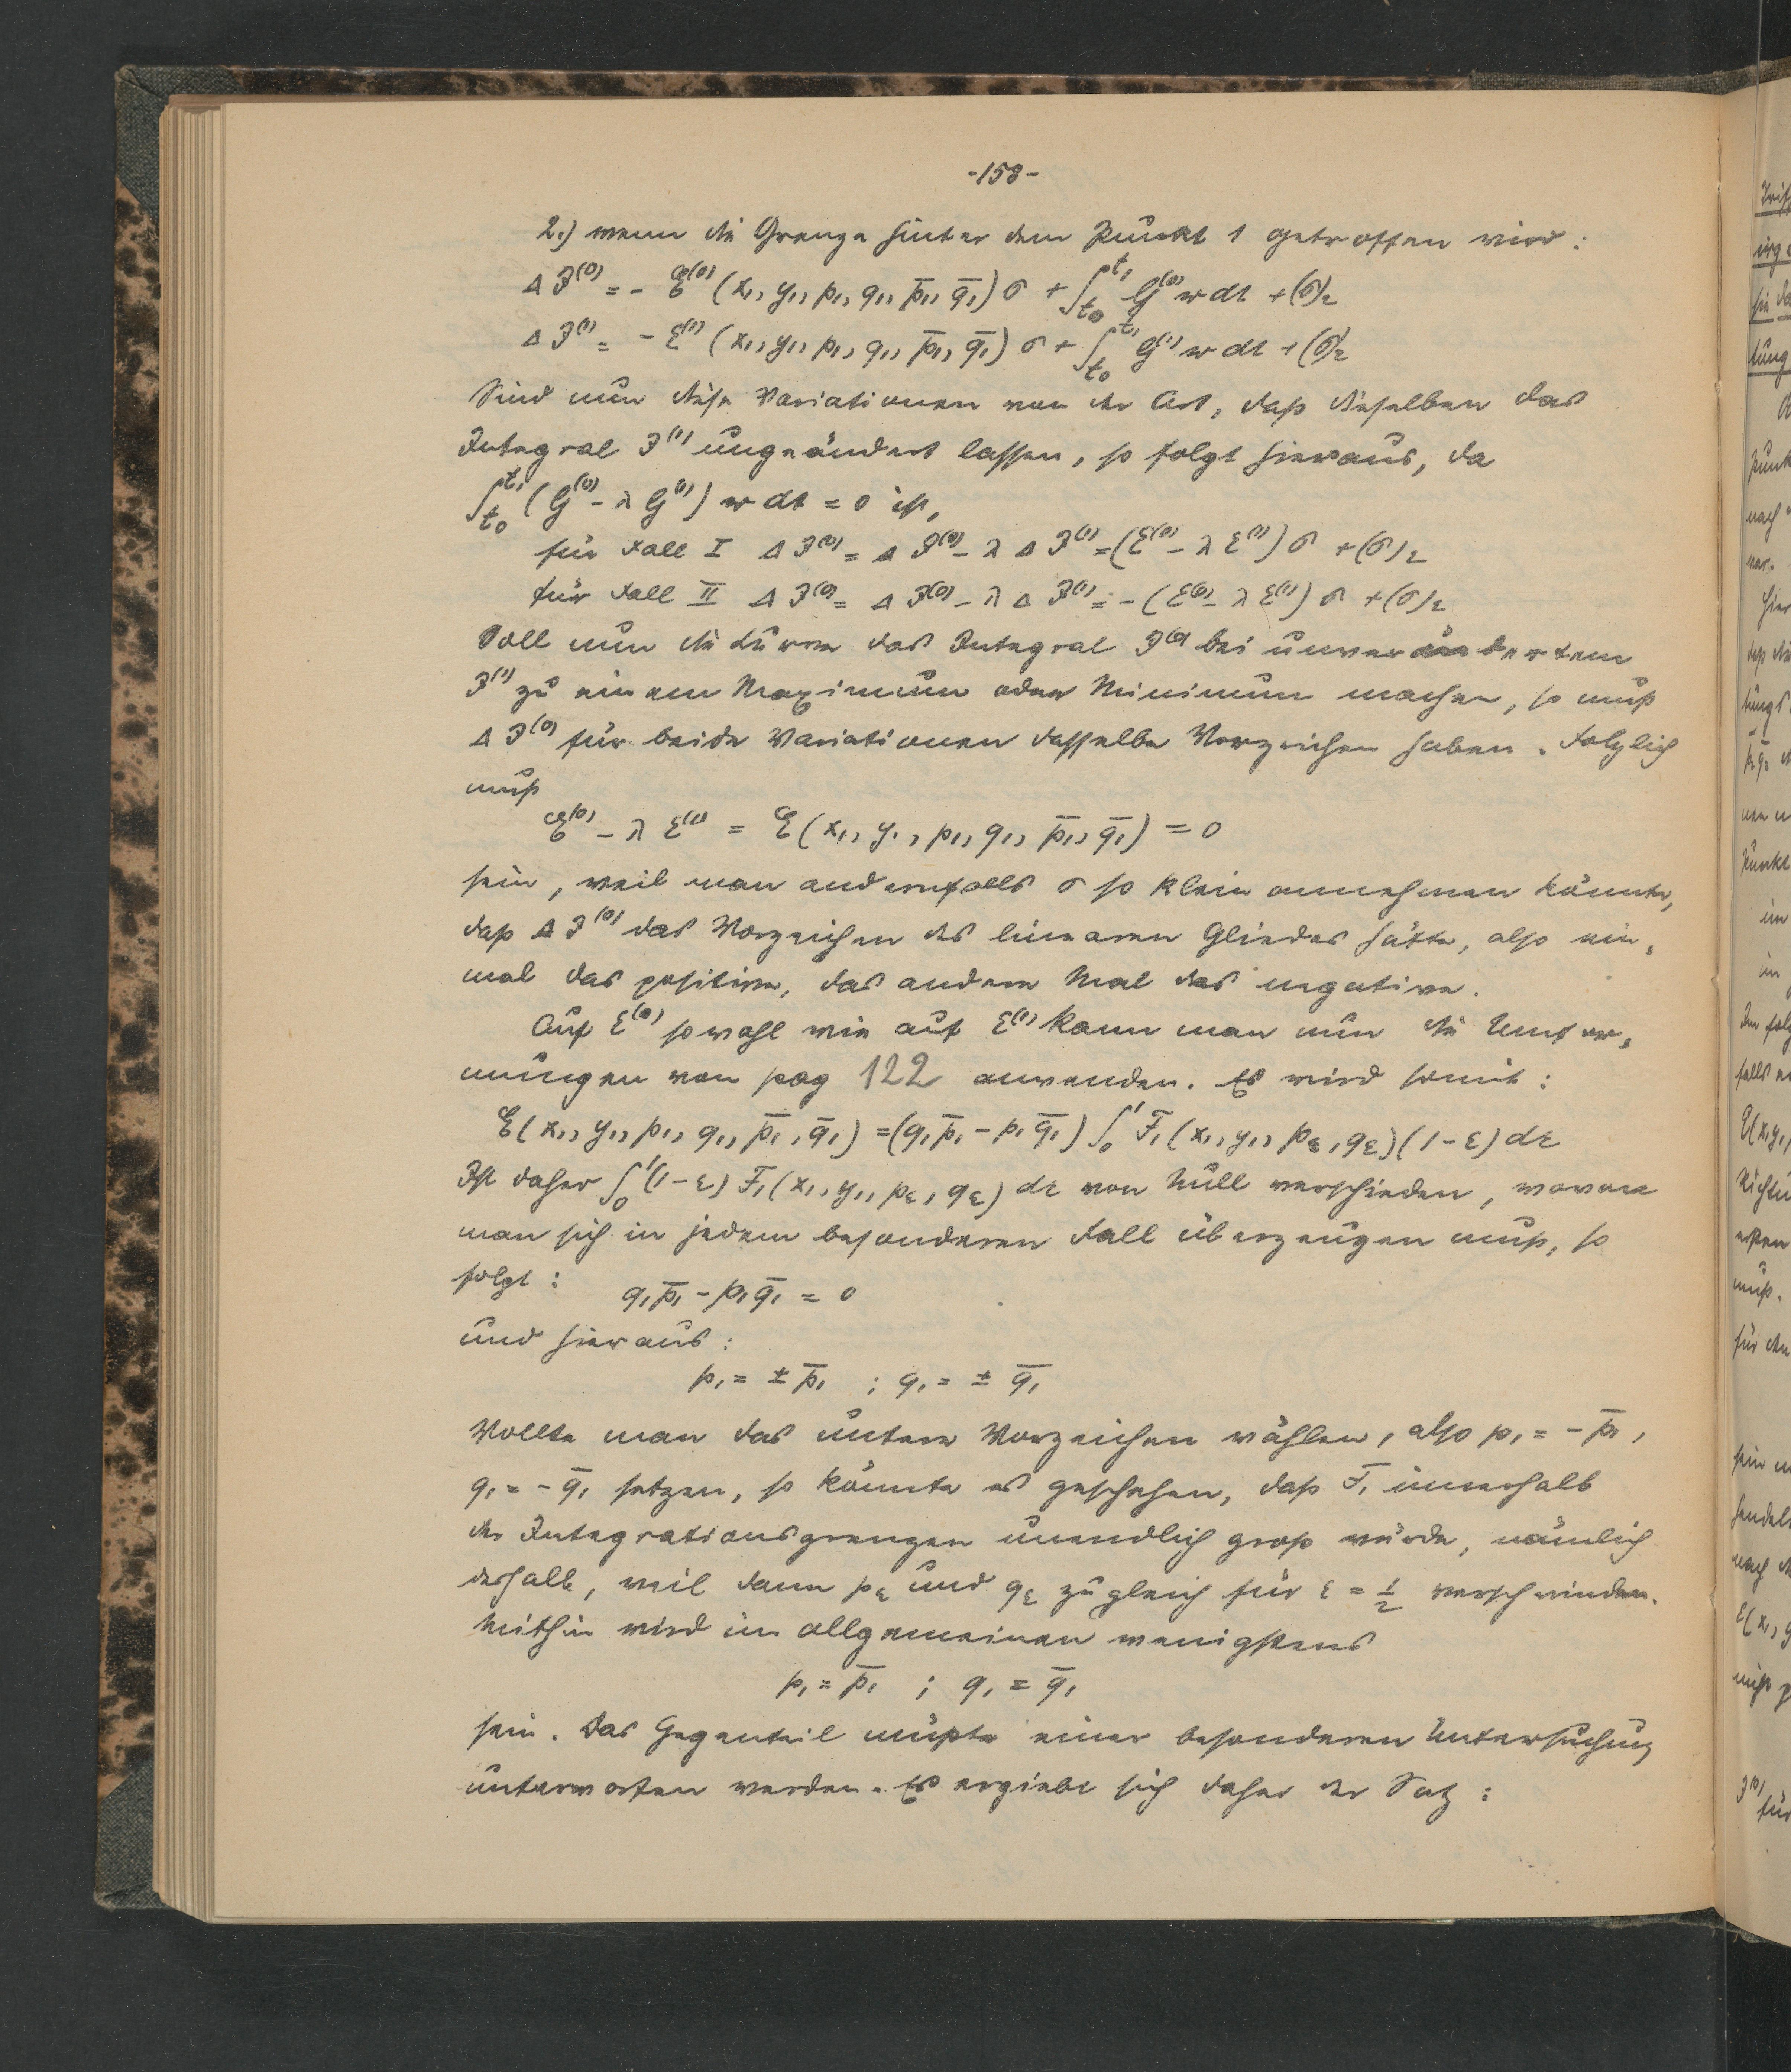 -158-
2.) wenn die Grenze hinter dem Punkt 1 getroffen wird:
Δ J⁽⁰⁾ = - ℰ⁽⁰⁾ (x₁, y₁, p₁, q₁, p̄₁, q̄₁) σ + ∫_{t₀}^{t₁} G⁽⁰⁾ w dt + (σ)₂
Δ J⁽¹⁾ = - ℰ⁽¹⁾ (x₁, y₁, p₁, q₁, p̄₁, q̄₁) σ + ∫_{t₀}^{t₁} G⁽¹⁾ w dt + (σ)₂
Sind nun diese Variationen von der Art, daß dieselben das
Integral J⁽¹⁾ ungeändert lassen, so folgt hieraus, da
∫_{t₀}^{t₁} (G⁽⁰⁾ - λ G⁽¹⁾) w dt = 0 ist,
für Fall I Δ J⁽⁰⁾ = Δ J⁽⁰⁾ - λ Δ J⁽¹⁾ = (ℰ⁽⁰⁾ - λ ℰ⁽¹⁾) σ + (σ)₂
für Fall II Δ J⁽⁰⁾ = Δ J⁽⁰⁾ - λ Δ J⁽¹⁾ = - (ℰ⁽⁰⁾ - λ ℰ⁽¹⁾) σ + (σ)₂
Soll nun die Kurve das Integral J⁽⁰⁾ bei unverändertem
J⁽¹⁾ zu einem Maximum oder Minimum machen, so muß
Δ J⁽⁰⁾ für beide Variationen dasselbe Vorzeichen haben. Folglich
muß
ℰ⁽⁰⁾ - λ ℰ⁽¹⁾ = ℰ (x₁, y₁, p₁, q₁, p̄₁, q̄₁) = 0
sein, weil man andernfalls σ so klein annehmen könnte,
daß Δ J⁽⁰⁾ das Vorzeichen des linearen Gliedes hätte, also ein-
mal das positive, das andere Mal das negative.
Auf ℰ⁽⁰⁾ sowohl wie auf ℰ⁽¹⁾ kann man nun die Umfor-
mungen von pag 122 anwenden. Es wird somit:
ℰ (x₁, y₁, p₁, q₁, p̄₁, q̄₁) = (q₁ p̄₁ - p₁ q̄₁) ∫₀¹ F₁ (x₁, y₁, p_ε, q_ε) (1-ε) dε
Ist daher ∫₀¹ (1-ε) F₁ (x₁, y₁, p_ε, q_ε) dε von Null verschieden, wovon
man sich in jedem besonderen Fall überzeugen muß, so
folgt: q₁ p̄₁ - p₁ q̄₁ = 0
und hieraus:
p₁ = ± p̄₁ ; q₁ = ± q̄₁
Wollte man das untere Vorzeichen wählen, also p₁ = - p̄₁,
q₁ = - q̄₁ setzen, so könnte es geschehen, daß F₁ innerhalb
der Integrationsgrenzen unendlich groß würde, nämlich
deshalb, weil dann p_ε und q_ε zugleich für ε = ½ verschwinden.
Mithin wird im allgemeinen wenigstens
p₁ = p̄₁ ; q₁ = q̄₁
sein. Das Gegenteil müßte einer besonderen Untersuchung
unterworfen werden. Es ergiebt sich daher der Satz: